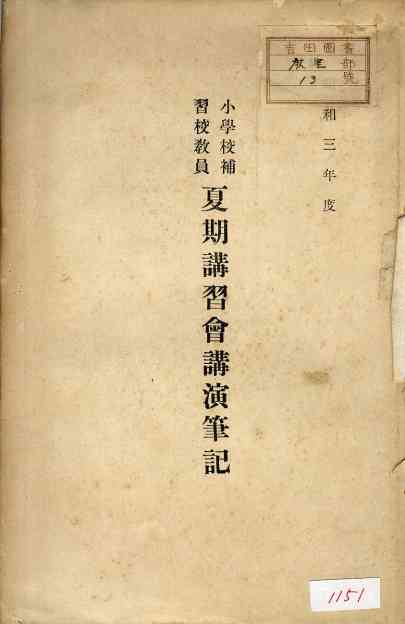 吉田圖書
部
13 號
和三年度
小學校補
習校敎員
夏期講習會講演筆記
1151